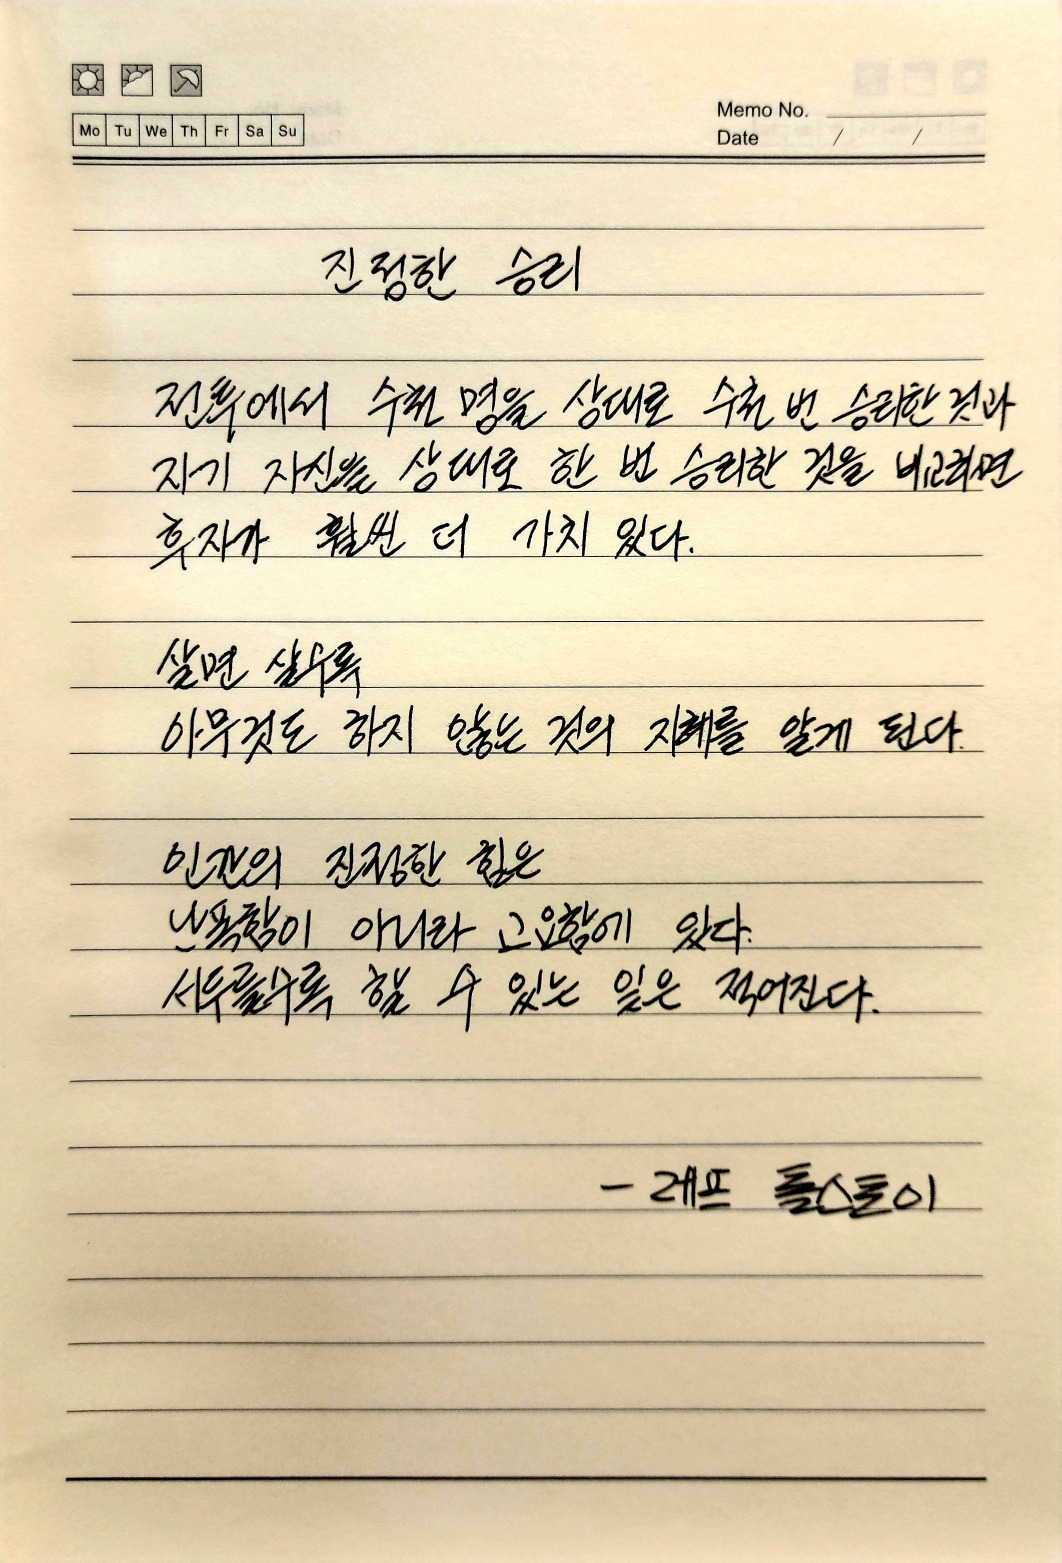 Mo Tu We Th Fr Sa Su
Memo No.
Date / /
진정한 승리
전투에서 수천 명을 상대로 수천 번 승리한 것과
자기 자신을 상대로 한 번 승리한 것을 비교하면
후자가 훨씬 더 가치 있다.
살면 살수록
아무것도 하지 않는 것의 지혜를 알게 된다.
인간의 진정한 힘은
난폭함이 아니라 고요함에 있다.
서두를수록 할 수 있는 일은 적어진다.
- 레프 톨스토이